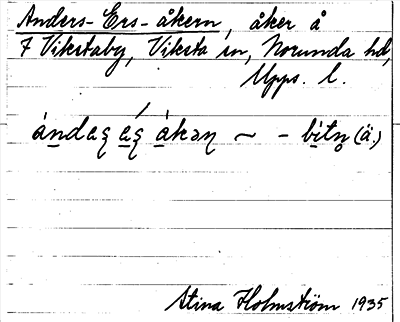 Anders-Ers-åkern, åker å
7 Vikstaby, Viksta sn, Norunda hd,
Upps. l.
ándaʂ éʂ åkəɳ ~ - bitn̥ (ä.)
Stina Holmström 1935